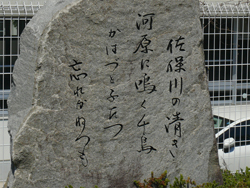 佐保川の清き
河原に鳴く千鳥
かはづとふたつ
忘れかねつも